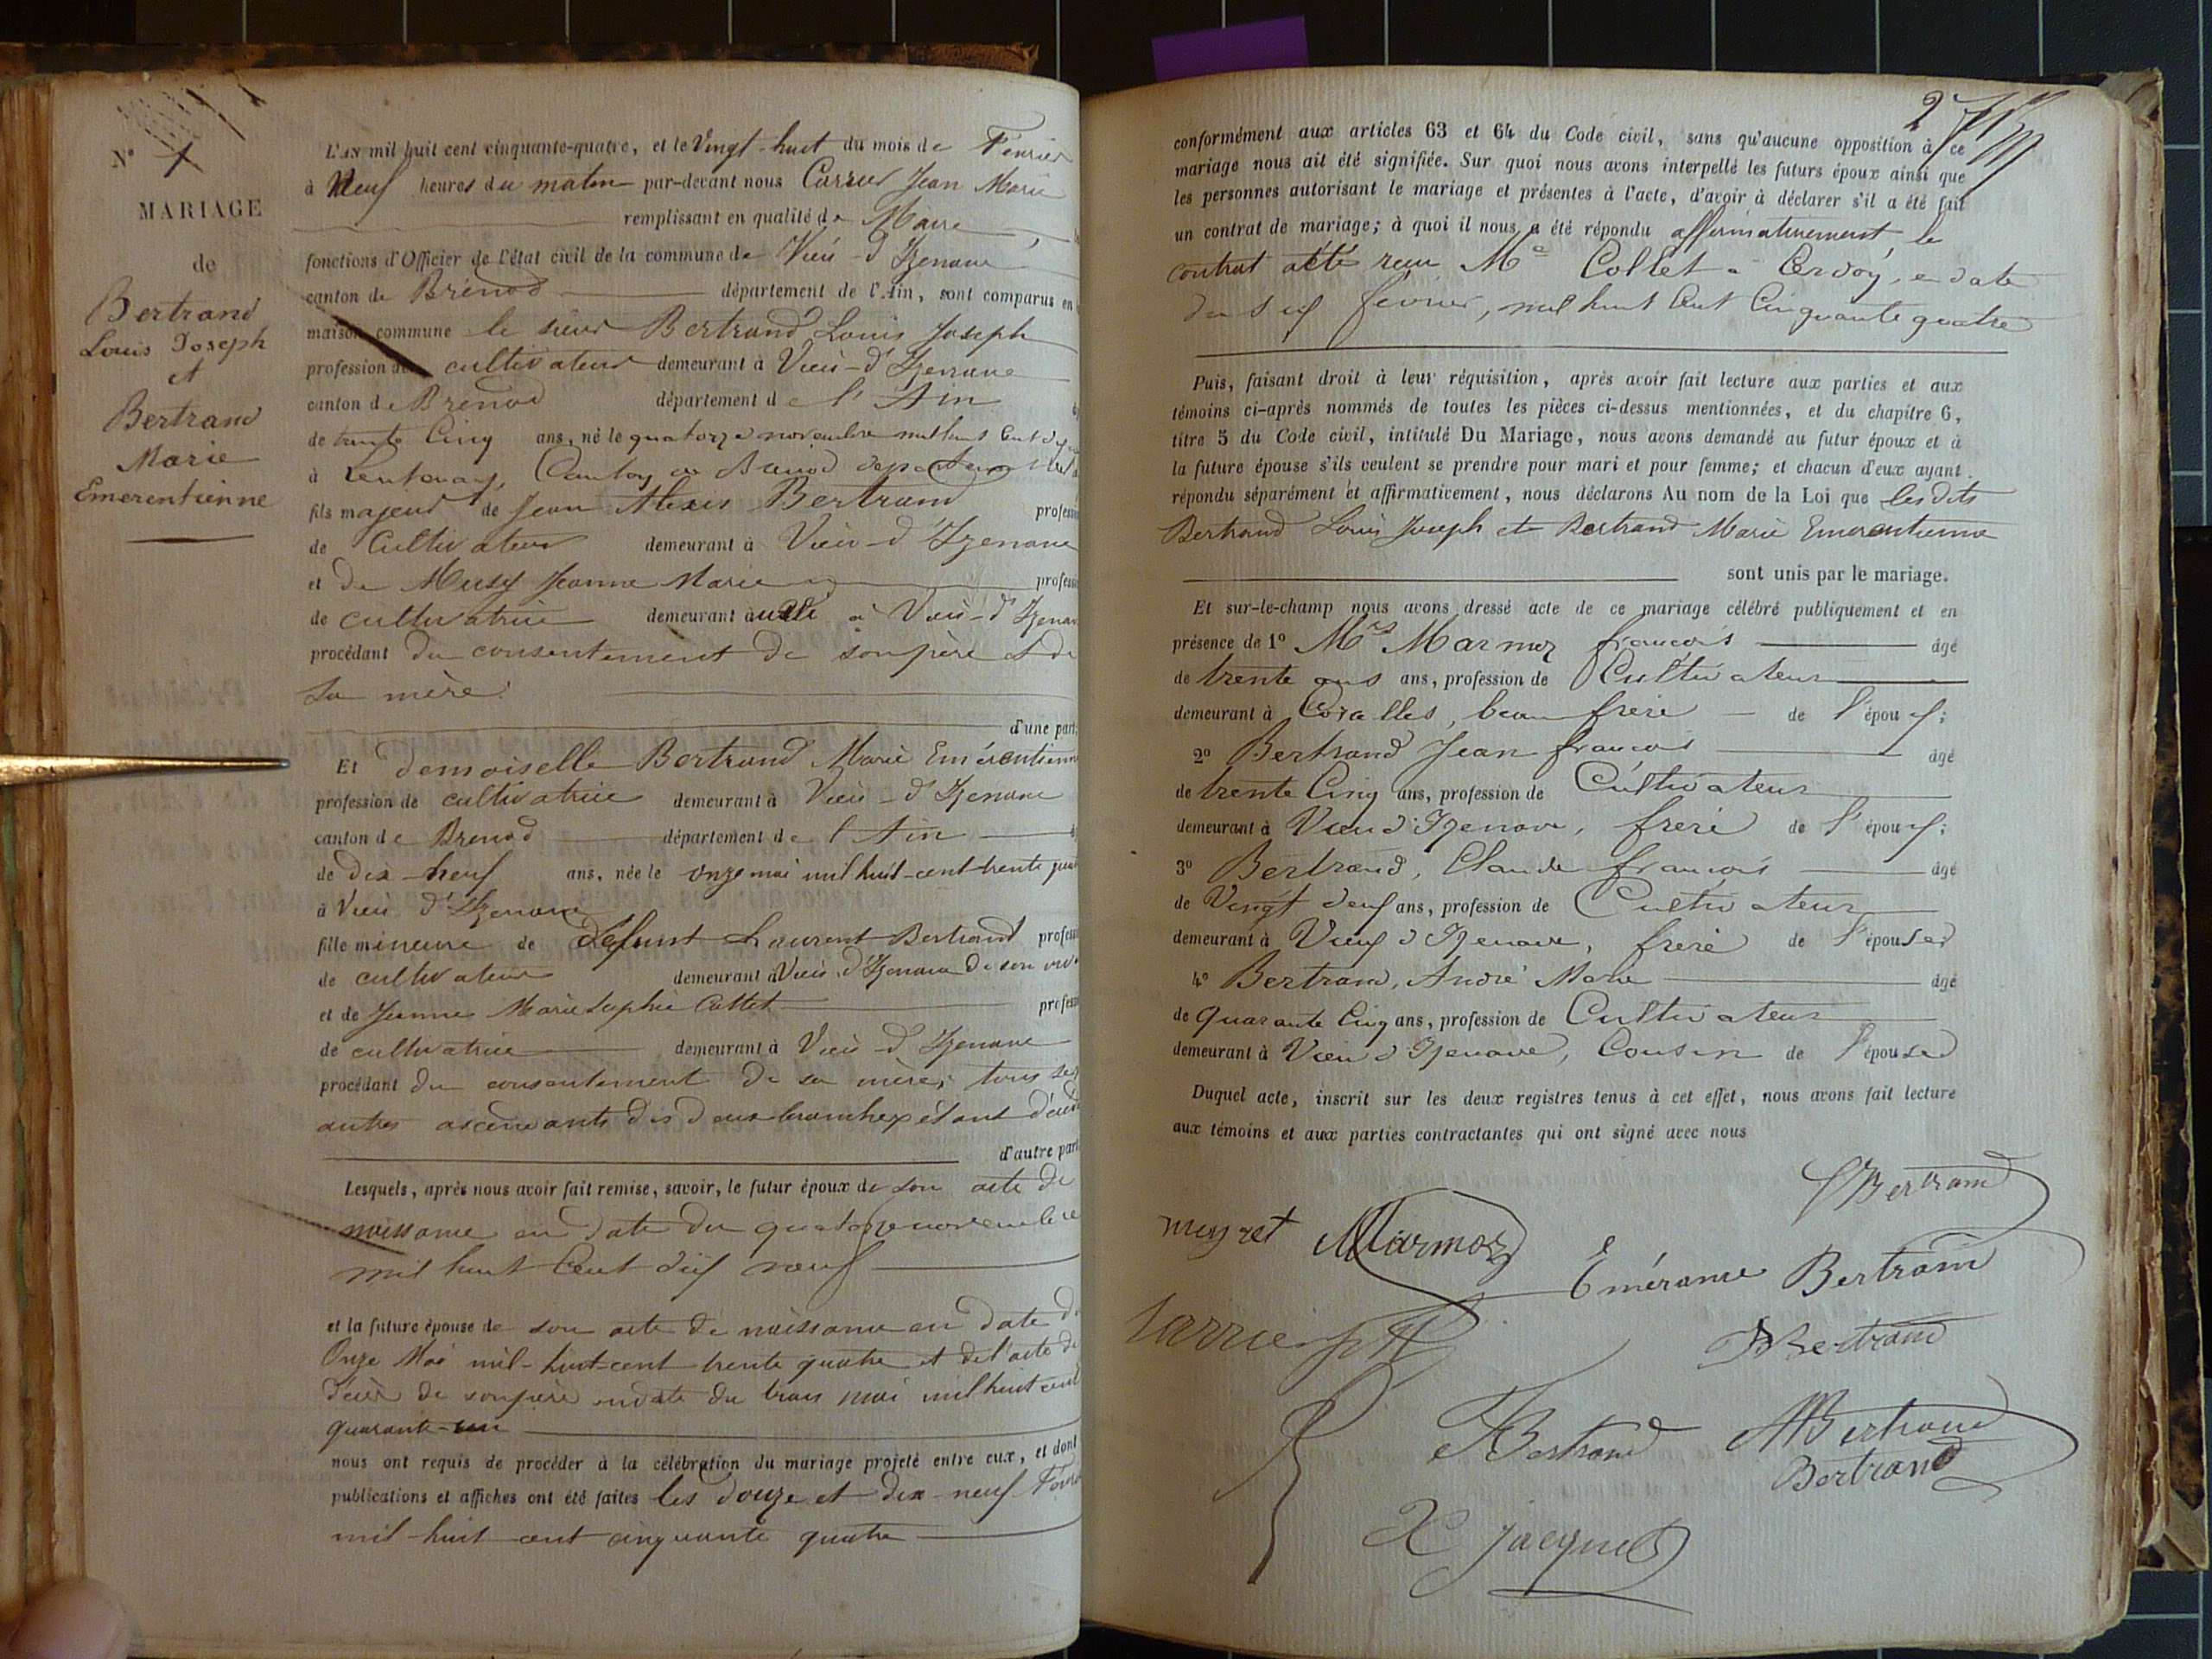 N° 1
MARIAGE
de
Bertrand
Louis Joseph
et
Bertrand
Marie
Emerentienne
L'AN mil huit cent cinquante-quatre, et le Vingt-huit du mois de Février
à Neuf heures du matin par-devant nous Carrier Jean Marie
remplissant en qualité de Maire
fonctions d'Officier de l'état civil de la commune de Vieu-d'Izenave
canton de Brénod département de l'Ain, sont comparus en
maison commune le sieur Bertrand Louis Joseph
profession de cultivateur demeurant à Vieu-d'Izenave
canton de Brénod département de l'Ain
de trente Cinq ans, né le quatorze novembre mil huit Cent
à Lentenay, Canton de Brénod département
fils majeur de Jean Alexis Bertrand profession
de Cultivateur demeurant à Vieu-d'Izenave
et de Musy Jeanne Marie profession
de cultivatrice demeurant à Vieu-d'Izenave
procédant du consentement de son père et de
sa mère.
d'une part;
Et demoiselle Bertrand Marie Emérentienne
profession de cultivatrice demeurant à Vieu-d'Izenave
canton de Brenod département de l'Ain
de dix-neuf ans, née le onze mai mil huit-cent-trente quatre
à Vieu d'Izenave
fille mineure de Défunt Laurent Bertrand profession
de cultivateur demeurant à Vieu d'Izenave de son vivant
et de Jeanne Marie Sophie Cattet profession
de cultivatrice demeurant à Vieu-d'Izenave
procédant du consentement de sa mère; tous ses
autres ascendants des deux branches étant décédés
d'autre part
Lesquels, après nous avoir fait remise, savoir, le futur époux de son acte de
naissance en date du quatorze novembre
mil huit Cent dix neuf
et la future épouse de son acte de naissance en date du
Onze Mai mil-huit-cent trente quatre et de l'acte de
décès de son père en date du trois mai mil huit cent
quarante-un
nous ont requis de procéder à la célébration du mariage projeté entre eux, et dont
publications et affiches ont été faites les douze et dix-neuf Février
mil-huit cent cinquante quatre
27
conformément aux articles 63 et 64 du Code civil, sans qu'aucune opposition à ce
mariage nous ait été signifiée. Sur quoi nous avons interpellé les futurs époux ainsi que
les personnes autorisant le mariage et présentes à l'acte, d'avoir à déclarer s'il a été fait
un contrat de mariage; à quoi il nous a été répondu affirmativement, le
contrat a été reçu Me Collet à Cerdon, en date
du six février, mil huit Cent Cinquante quatre
Puis, faisant droit à leur réquisition, après avoir fait lecture aux parties et aux
témoins ci-après nommés de toutes les pièces ci-dessus mentionnées, et du chapitre 6,
titre 5 du Code civil, intitulé Du Mariage, nous avons demandé au futur époux et à
la future épouse s'ils veulent se prendre pour mari et pour femme; et chacun d'eux ayant
répondu séparément et affirmativement, nous déclarons Au nom de la Loi que les dits
Bertrand Louis Joseph et Bertrand Marie Emerentienne
sont unis par le mariage.
Et sur-le-champ nous avons dressé acte de ce mariage célébré publiquement et en
présence de 1° Mrs Marmoz françois âgé
de trente ans ans, profession de Cultivateur
demeurant à , beau frère de l'époux;
2° Bertrand Jean françois âgé
de trente Cinq ans, profession de Cultivateur
demeurant à Vieu d'Izenave, frère de l'époux;
3° Bertrand, Claude françois âgé
de Vingt deux ans, profession de Cultivateur
demeurant à Vieux d'Izenave, frère de l'épouse
4° Bertrand, André Marie âgé
de Quarante Cinq ans, profession de Cultivateur
demeurant à Vieu d'Izenave, Cousin de l'épouse
Duquel acte, inscrit sur les deux registres tenus à cet effet, nous avons fait lecture
aux témoins et aux parties contractantes qui ont signé avec nous
Bertrand
Marmoz
Emérance Bertrand
Carrier
Bertrand
Bertrand
Bertrand
Bertrand
Jacquet